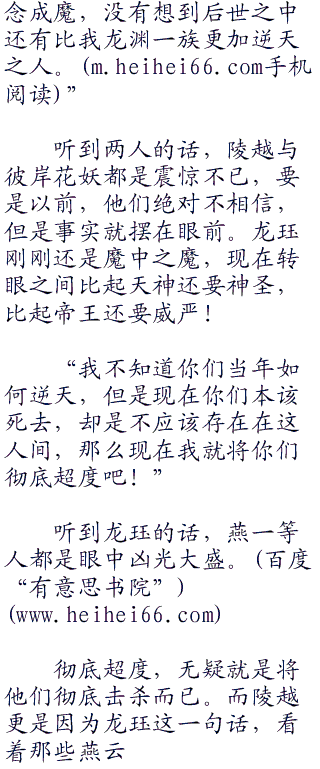 念成魔，没有想到后世之中
还有比我龙渊一族更加逆天
之人。(m.heihei66.com手机
阅读)”
听到两人的话，陵越与
彼岸花妖都是震惊不已，要
是以前，他们绝对不相信，
但是事实就摆在眼前。龙珏
刚刚还是魔中之魔，现在转
眼之间比起天神还要神圣，
比起帝王还要威严！
“我不知道你们当年如
何逆天，但是现在你们本该
死去，却是不应该存在在这
人间，那么现在我就将你们
彻底超度吧！”
听到龙珏的话，燕一等
人都是眼中凶光大盛。(百度
“有意思书院”)
(www.heihei66.com)
彻底超度，无疑就是将
他们彻底击杀而已。而陵越
更是因为龙珏这一句话，看
着那些燕云